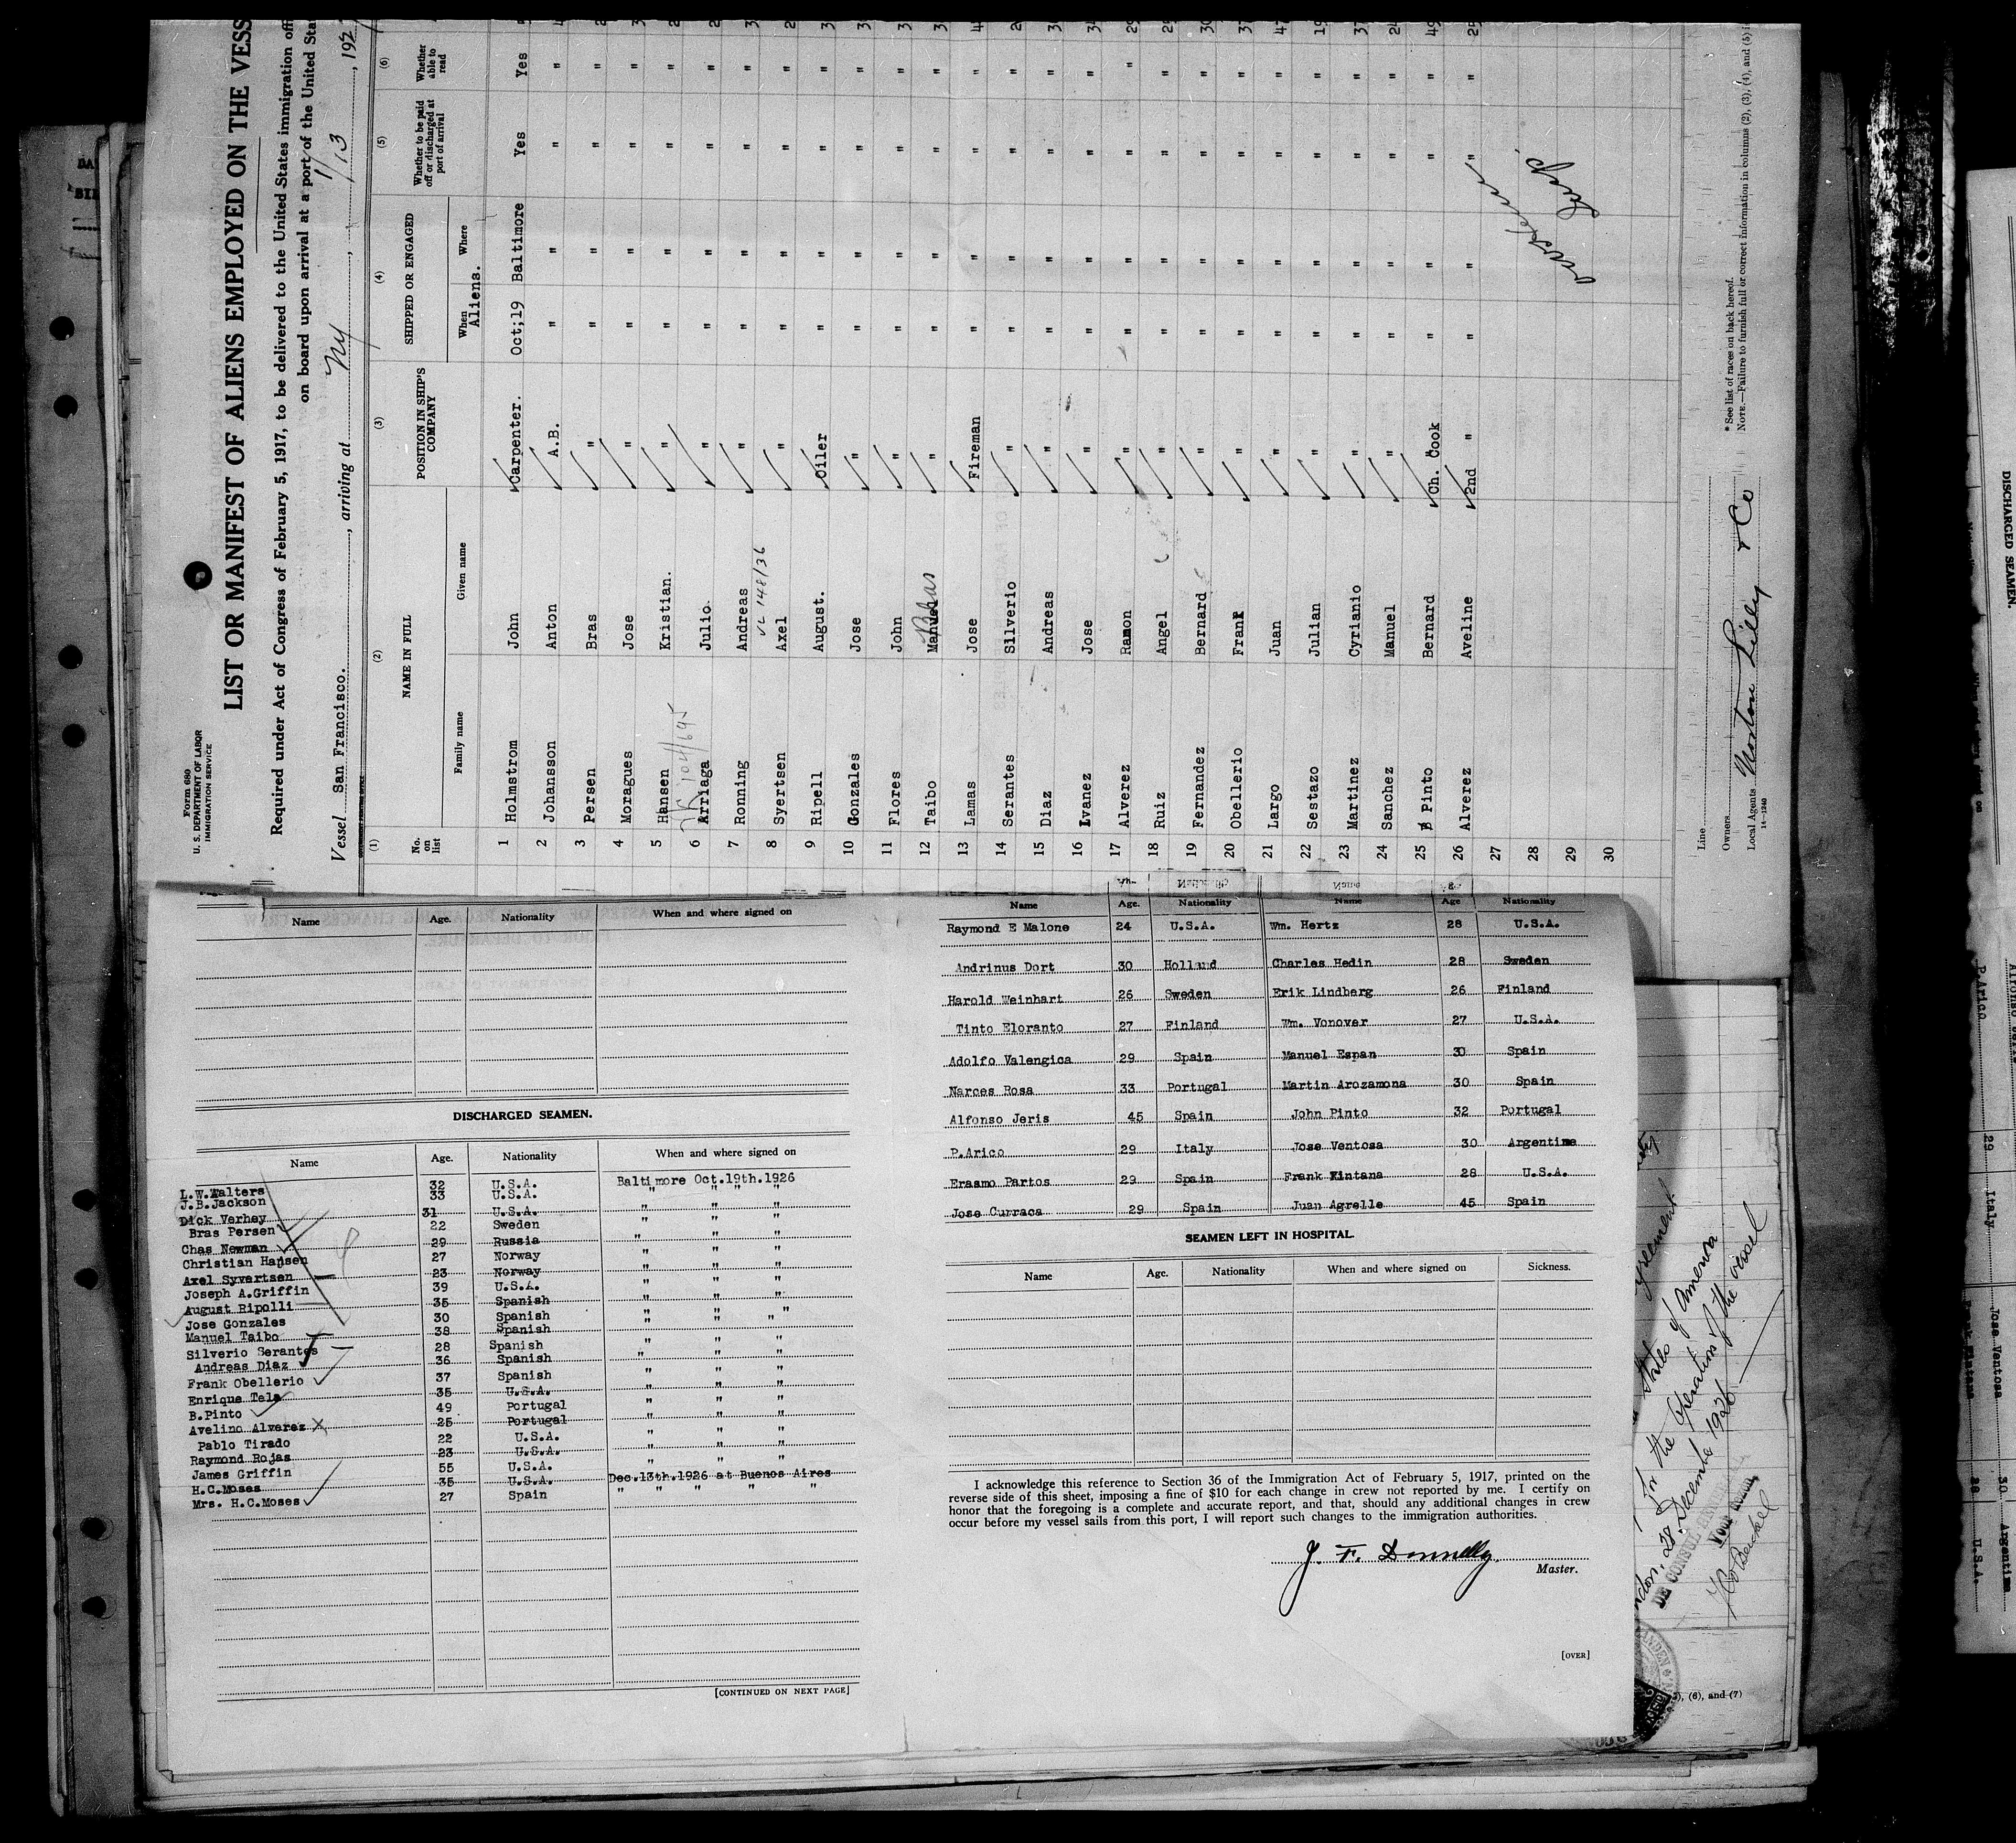 Form 680
U. S. DEPARTMENT OF LABOR
IMMIGRATION SERVICE
LIST OR MANIFEST OF ALIENS EMPLOYED ON THE VESS
Required under Act of Congress of February 5, 1917, to be delivered to the United States immigration off
on board upon arrival at a port of the United Sta
Vessel San Francisco. , arriving at NY , 1/13 , 192
(1) (2) (3) (4) (5) (6)
No. on list NAME IN FULL POSITION IN SHIP'S COMPANY SHIPPED OR ENGAGED Whether to be paid off or discharged at port of arrival Whether able to read
Family name Given name When Where
Aliens.
1 Holmstrom John Carpenter. Oct;19 Baltimore Yes Yes
2 Johansson Anton A.B. " " " "
3 Persen Bras " " " " " 
4 Moragues Jose " " " " "
5 Hansen Kristian. " " " " "
6 Arriaga Julio " " " " "
7 Ronning Andreas " " " " "
VL 148/36
8 Syertsen Axel " " " " "
9 Ripell August. Oiler " " " "
10 Gonzales Jose " " " " "
11 Flores John " " " " "
12 Taibo Manuel " " " " "
13 Lamas Jose Fireman " " " "
14 Serantes Silverio " " " " "
15 Diaz Andreas " " " " "
16 Ivanez Jose " " " " "
17 Alverez Ramon " " " " "
18 Ruiz Angel " " " " "
19 Fernandez Bernard " " " " "
20 Obellerio Frank " " " " "
21 Largo Juan " " " " "
22 Sestazo Julian " " " " "
23 Martinez Cyrianio " " " " "
24 Sanchez Manuel " " " " "
25 Pinto Bernard Ch. Cook " " " "
26 Alverez Aveline 2nd " " " " "
27
28
29
30
Line
Owners
Local Agents Norton Lilly & Co
14-1240
* See list of races on back hereof.
NOTE.—Failure to furnish full or correct information in columns (2), (3), (4), and (5) i
Name Age. Nationality When and where signed on
DISCHARGED SEAMEN.
Name Age. Nationality When and where signed on
L.W.Walters 32 U.S.A. Baltimore Oct.19th.1926
J.B.Jackson 33 U.S.A. " " " "
Dick Verhey 31 U.S.A. " " "
Bras Persen 22 Sweden " " "
Chas Newman 29 Russia " " "
Christian Hansen 27 Norway " " "
Axel Syvertsen 23 Norway " " "
Joseph A.Griffin 39 U.S.A. " " "
August Ripolli 35 Spanish " " "
Jose Gonzales 30 Spanish " " "
Manuel Taibo 38 Spanish " " "
Silverio Serantes 28 Spanish " " "
Andreas Diaz 36 Spanish " " "
Frank Obellerio 37 Spanish " " "
Enrique Tela 35 U.S.A. " " "
B.Pinto 49 Portugal " " "
Avelino Alverez 25 Portugal " " "
Pablo Tirado 22 U.S.A. " " "
Raymond Rojas 23 U.S.A. " " "
James Griffin 55 U.S.A. " " "
H.C.Moses 35 U.S.A. Dec.13th.1926 at Buenos Aires
Mrs. H.C.Moses 27 Spain " " " " "
[CONTINUED ON NEXT PAGE]
Name Age. Nationality Name Age Nationality
Raymond E Malone 24 U.S.A. Wm. Hertz 28 U.S.A.
Andrinus Dort 30 Holland Charles Hedin 28 Sweden
Harold Weinhart 26 Sweden Erik Lindberg 26 Finland
Tinto Eloranto 27 Finland Wm. Vonover 27 U.S.A.
Adolfo Valengica 29 Spain Manuel Espan 30 Spain
Narces Rosa 33 Portugal Martin Arozamona 30 Spain
Alfonso Jeris 45 Spain John Pinto 32 Portugal
P.Arico 29 Italy Jose Ventosa 30 Argentine
Erasmo Partos 29 Spain Frank Kintana 28 U.S.A.
Jose Curraca 29 Spain Juan Agrelle 45 Spain
SEAMEN LEFT IN HOSPITAL.
Name Age. Nationality When and where signed on Sickness.
I acknowledge this reference to Section 36 of the Immigration Act of February 5, 1917, printed on the
reverse side of this sheet, imposing a fine of $10 for each change in crew not reported by me. I certify on
honor that the foregoing is a complete and accurate report, and that, should any additional changes in crew
occur before my vessel sails from this port, I will report such changes to the immigration authorities.
J. F. Donnelly
Master.
[OVER]
States of America
for the operation of the vessel
28 December 1926
DE CONSUL
, (6), and (7)
DISCHARGED SEAMEN.
P.Arico 29 Italy Jose Ventosa 30 Argentine
28 U.S.A.